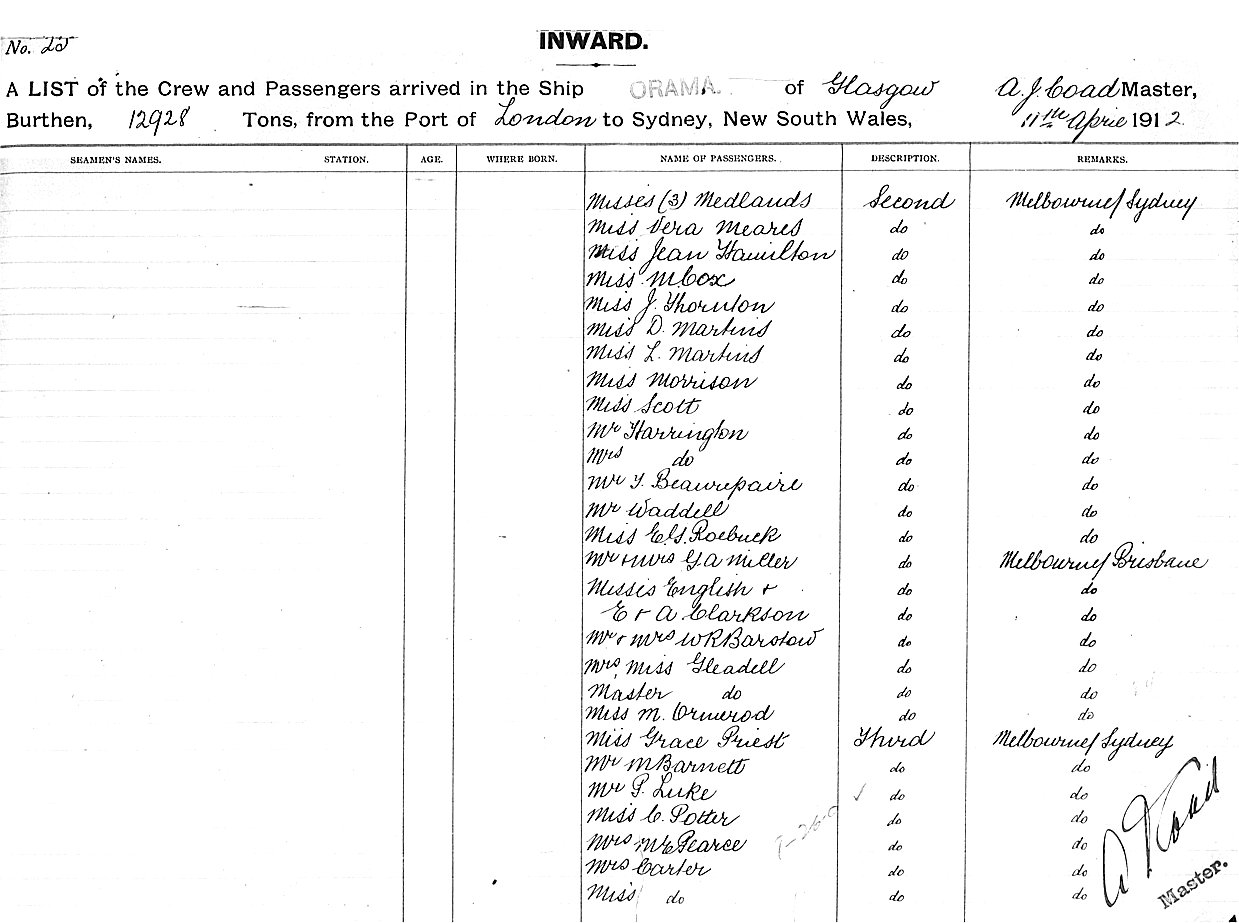 No. 25
INWARD.
A LIST of the Crew and Passengers arrived in the Ship ORAMA. of Glasgow A. J. Coad Master,
Burthen, 12928 Tons, from the Port of London to Sydney, New South Wales, 11th April 1912
SEAMEN'S NAMES. STATION. AGE. WHERE BORN. NAME OF PASSENGERS. DESCRIPTION. REMARKS.
Misses (3) Medlands Second Melbourne/Sydney
Miss Vera Meares do do
Miss Jean Hamilton do do
Miss M Cox do do
Miss J. Thornton do do
Miss D. Martins do do
Miss L. Martins do do
Miss Morrison do do
Miss Scott do do
Mr Harrington do do
Mrs do do do
Mr F. Beaurepaire do do
Mr Waddell do do
Miss E.G. Roebuck do do
Mr + Mrs G A Miller do Melbourne/Brisbane
Misses English + do do
E + A Clarkson do do
Mr + Mrs W R Barstow do do
Mrs, Miss Gleadell do do
Master do do do
Miss M. Ormerod do do
Miss Grace Priest Third Melbourne/Sydney
Mr M Barnett do do
Mr P. Luke do do
Miss C. Potter do do
Mrs Pearce do do
Mrs Carter do do
Miss do do do
A J Coad
Master.